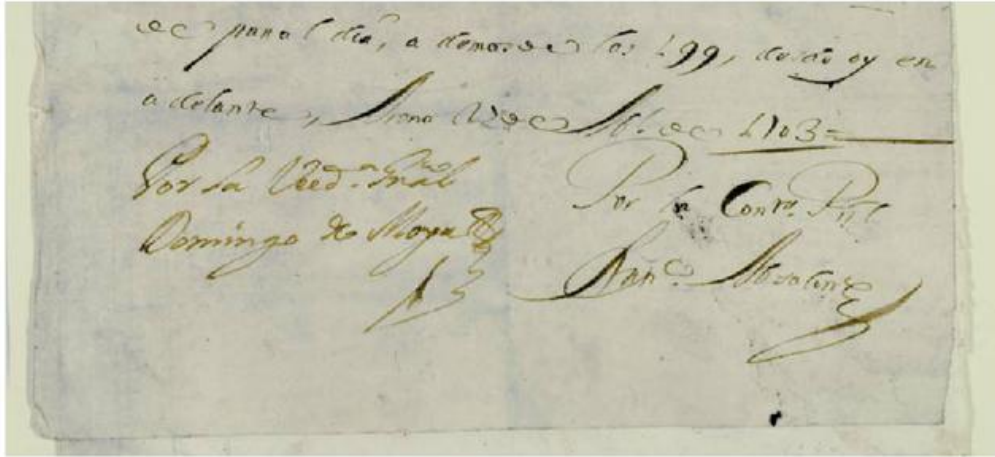 de pan al dia, a demas de los 499, desde oy en
adelante, de de 1703=
Por la Veed.ª Gral
Domingo de Moya
Por la Cont.ª Pri.l
Fran.co